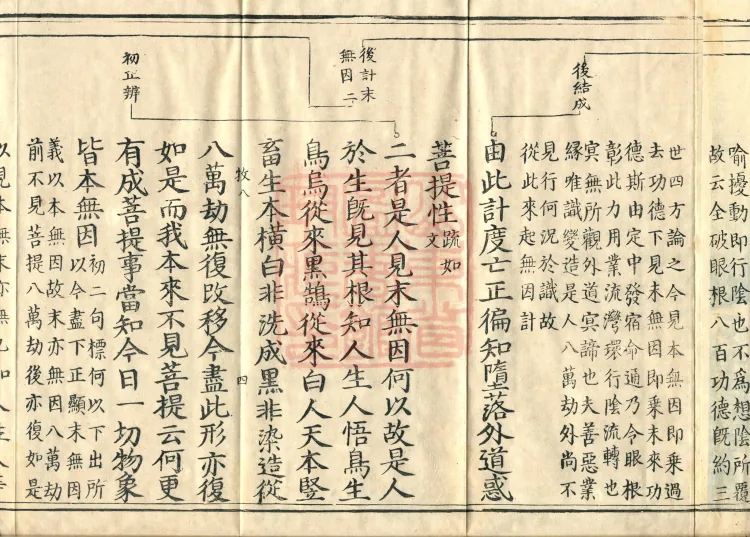 喻擾動即行陰也不為想陰所覆
故云全破眼根八百功德既約三
世四方論之今見本無因即乗過
去功德下見末無因即乗未來功
德斯由定中發宿命通乃令眼根
彰此力用業流灣環行陰流轉也
㝠無所觀外道㝠諦也夫善惡業
縁唯識變造是人八萬劫外尚不
見行何況於識故
從此來起無因計
後結成
由此計度亡正徧知墮落外道惑
菩提性疏如文
後計末
無因二
二者是人見末無因何以故是人
於生旣見其根知人生人悟鳥生
鳥烏從來黑鵠從來白人天本竪
畜生本橫白非洗成黑非染造從
牧八
四
八萬劫無復改移今盡此形亦復
如是而我本來不見菩提云何更
初正辨
有成菩提事當知今日一切物象
皆本無因初二句標何以下出所
以今盡下正顯末無因
義以本無因故末亦無因八萬劫
前不見菩提八萬劫後亦復如是